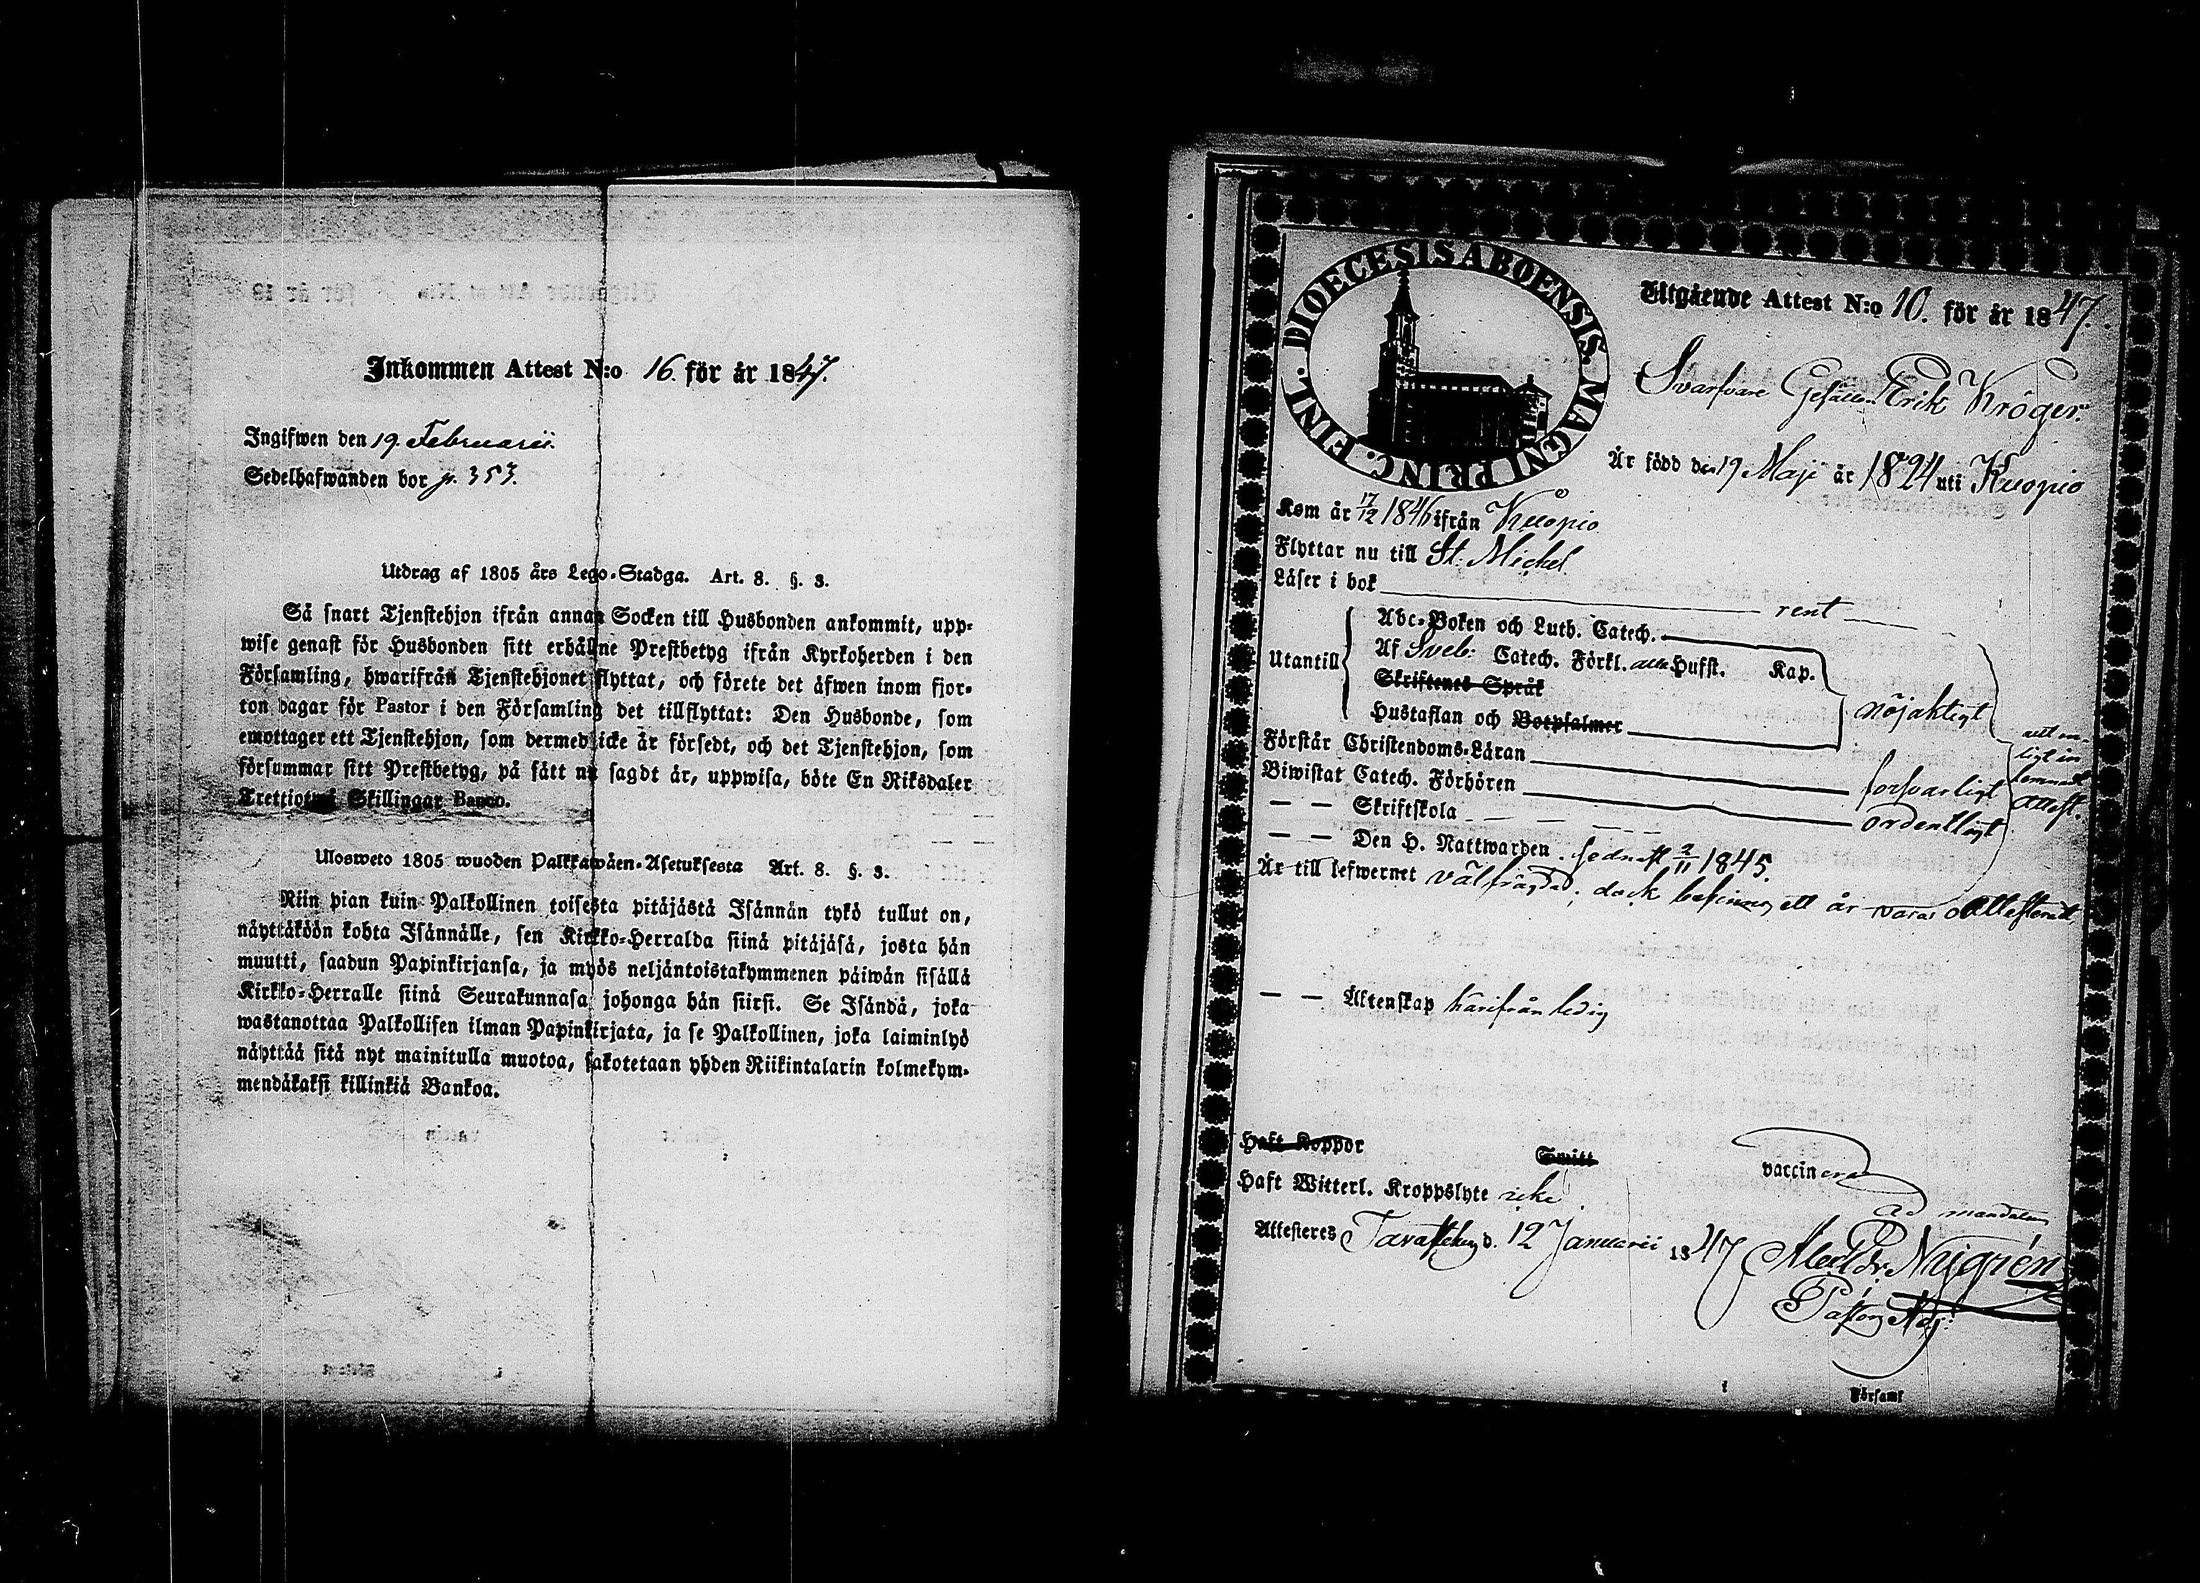 Inkommen Attest N:o 16. för år 1847.
Ingifwen den 19. Februarii.
Sedelhafwanden bor p. 353.
Utdrag af 1805 års Lego-Stadga. Art. 8. §. 3.
Så snart Tjenstehjon ifrån annan Socken till Husbonden ankommit, upp-
wise genast för Husbonden sitt erhållne Prestbetyg ifrån Kyrkoherden i den
Församling, hwarifrån Tjenstehjonet flyttat, och förete det äfwen inom fjor-
ton dagar för Pastor i den Församling det tillflyttat: Den Husbonde, som
emottager ett Tjenstehjon, som dermed icke är försedt, och det Tjenstehjon, som
försummar sitt Prestbetyg, på sätt nu sagdt är, uppwisa, böte En Riksdaler
Trettiotwå Skillingar Banco.
Ulosweto 1805 wuoden Palkkawäen-Asetuksesta Art. 8. §. 3.
Niin pian kuin Palkollinen toisesta pitäjästä Isännän tykö tullut on,
näyttäköön kohta Isännälle, sen Kirkko-Herralda siinä pitäjäsä, josta hän
muutti, saadun Papinkirjansa, ja myös neljäntoistakymmenen päiwän sisällä
Kirkko-Herralle siinä Seurakunnasa johonga hän siirsi. Se Isändä, joka
wastanottaa Palkollisen ilman Papinkirjata, ja se Palkollinen, joka laiminlyö
näyttää sitä nyt mainitulla muotoa, sakotetaan yhden Riikintalarin kolmekym-
mendäkaksi killinkiä Bankoa.
DIOECESIS ABOENSIS. MAGNI PRINC. FINL.
Utgående Attest N:o 10. för år 1847.
Svarfvare Gesällen Erik Kröger.
Är född den 19 Maji år 1824 uti Kuopio
Kom år 17/12 1846 ifrån Kuopio
Flyttar nu till St. Michel
Läser i bok rent
Utantill
Abc-Boken och Luth. Catech.
Af Sveb: Catech. Förkl. alla Hufst. Kap.
Skriftenes Språk
Hustaflan och Botpsalmer
nöjaktigt
Förstår Christendoms-Läran försvarligt
Biwistat Catech. Förhören ordentligt
allt en-
ligt in
lemnadt
Attest.
— — Skriftskola
— — Den H. Nattwarden sednast 2/11 1845.
Är till lefwernet välfrägdad; dock befinnes ett år vara oattesteradt
— — Äktenskap härifrån ledig
Haft Koppor Smitt vaccinerad
Haft Witterl. Kroppslyte icke
Attesteres Tavastehus d. 12 Januarii 1847
ad mandatum
Nygrén
Pastors Adj.
Församl